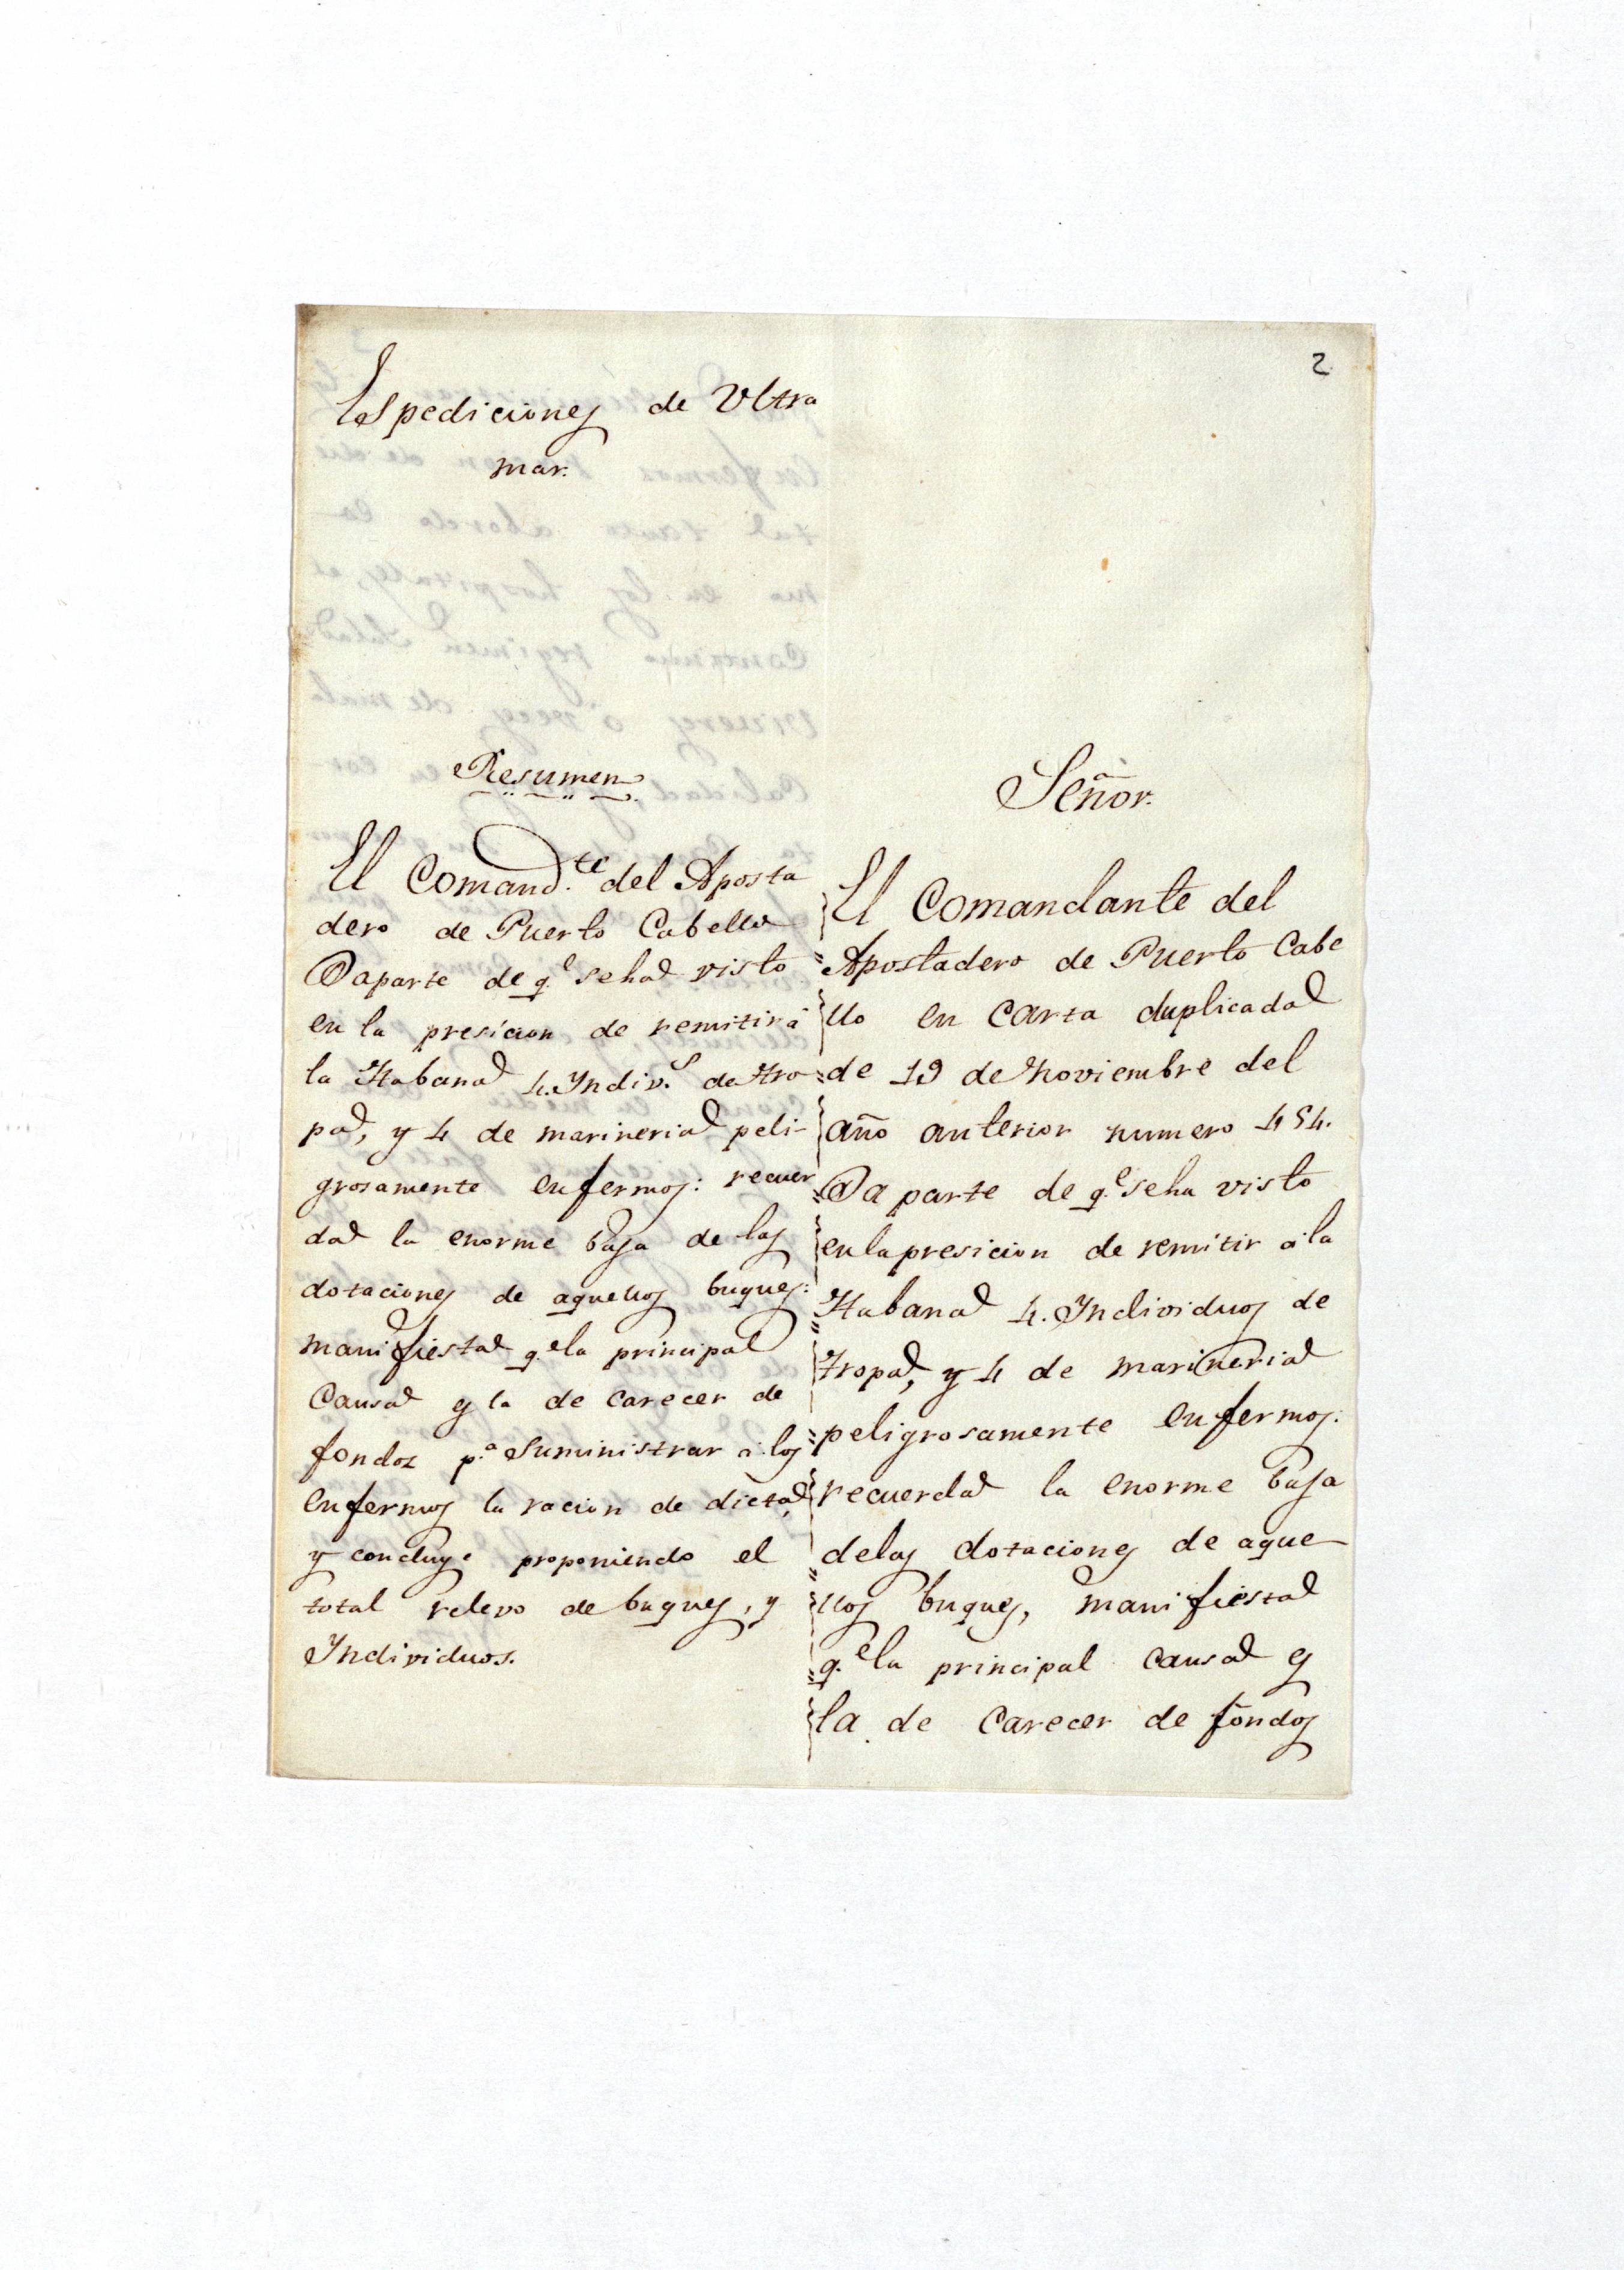 2
Espediciones de Vltra
mar.
Resumen
El Comand.te del Aposta
dero de Puerto Cabello
Da parte de q.e se ha visto
en la presicion de remitir á
la Habana 4. Yndiv.s de tro
pa, y 4 de marineria peli-
grosamente enfermos: recuer
da la enorme baja de las
dotaciones de aquellos buques:
manifiesta q.e la principal
Causa es la de Carecer de
fondos p.a Suministrar á los
enfermos la racion de dieta,
y concluye proponiendo el
total relevo de buques, y
Individuos.
Señor.
El Comandante del
Apostadero de Puerto Cabe
llo en Carta duplicada
de 19 de Noviembre del
año anterior numero 454.
Da parte de q.e se ha visto
en la presicion de remitir á la
Habana 4. Yndividuos de
tropa, y 4 de marineria
peligrosamente enfermos:
recuerda la enorme baja
de las dotaciones de aque
llos buques, manifiesta
q.e la principal Causa es
la de Carecer de fondos